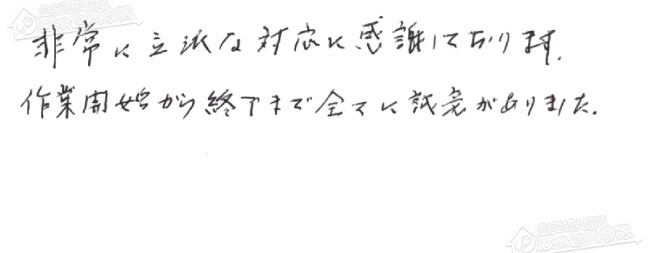 非常に立派な対応に感謝しております。
作業開始から終了まで全てに誠意がありました。